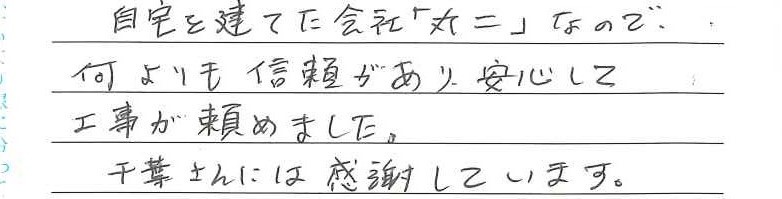 自宅を建てた会社「丸二」なので、
何よりも信頼があり、安心して
工事が頼めました。
千葉さんには感謝しています。